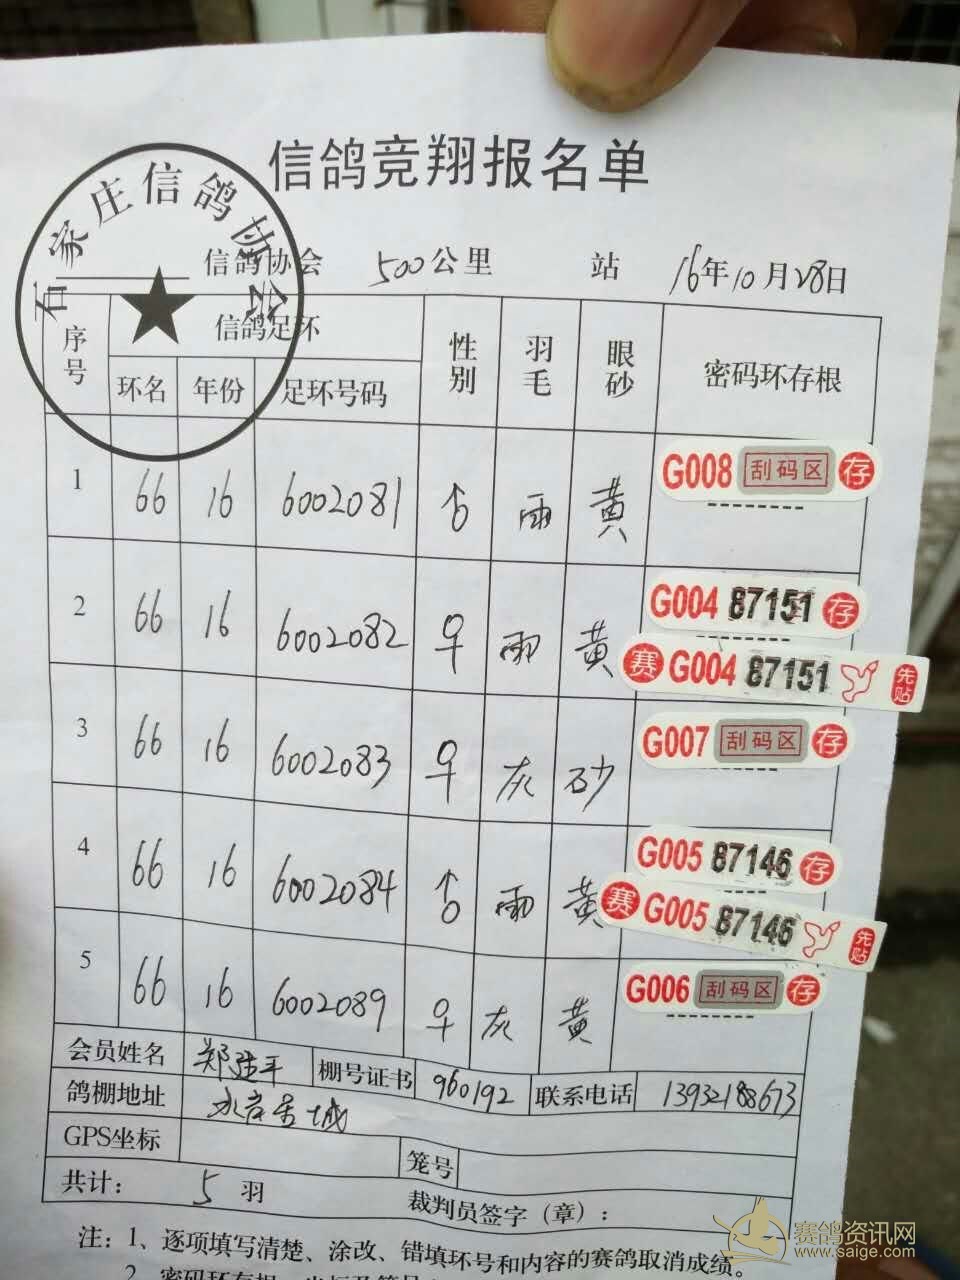 信鸽竞翔报名单
石家庄信鸽协会
信鸽协会 500公里 站 16年10月28日
序号 信鸽足环 性别 羽毛 眼砂 密码环存根
环名 年份 足环号码
1 66 16 6002081 ♂ 雨 黄 G008 刮码区 存
2 66 16 6002082 ♀ 雨 黄 G004 87151 存
赛 G004 87151 先贴
3 66 16 6002083 ♀ 灰 砂 G007 刮码区 存
4 66 16 6002084 ♂ 雨 黄 G005 87146 存
赛 G005 87146 先贴
5 66 16 6002089 ♀ 灰 黄 G006 刮码区 存
会员姓名 郑建平 棚号证书 960192 联系电话 13932188673
鸽棚地址 城
GPS坐标 笼号
共计： 5 羽 裁判员签字（章）：
注：1、逐项填写清楚、涂改、错填环号和内容的赛鸽取消成绩。
2、密码环存根
赛鸽资讯网
www.saige.com